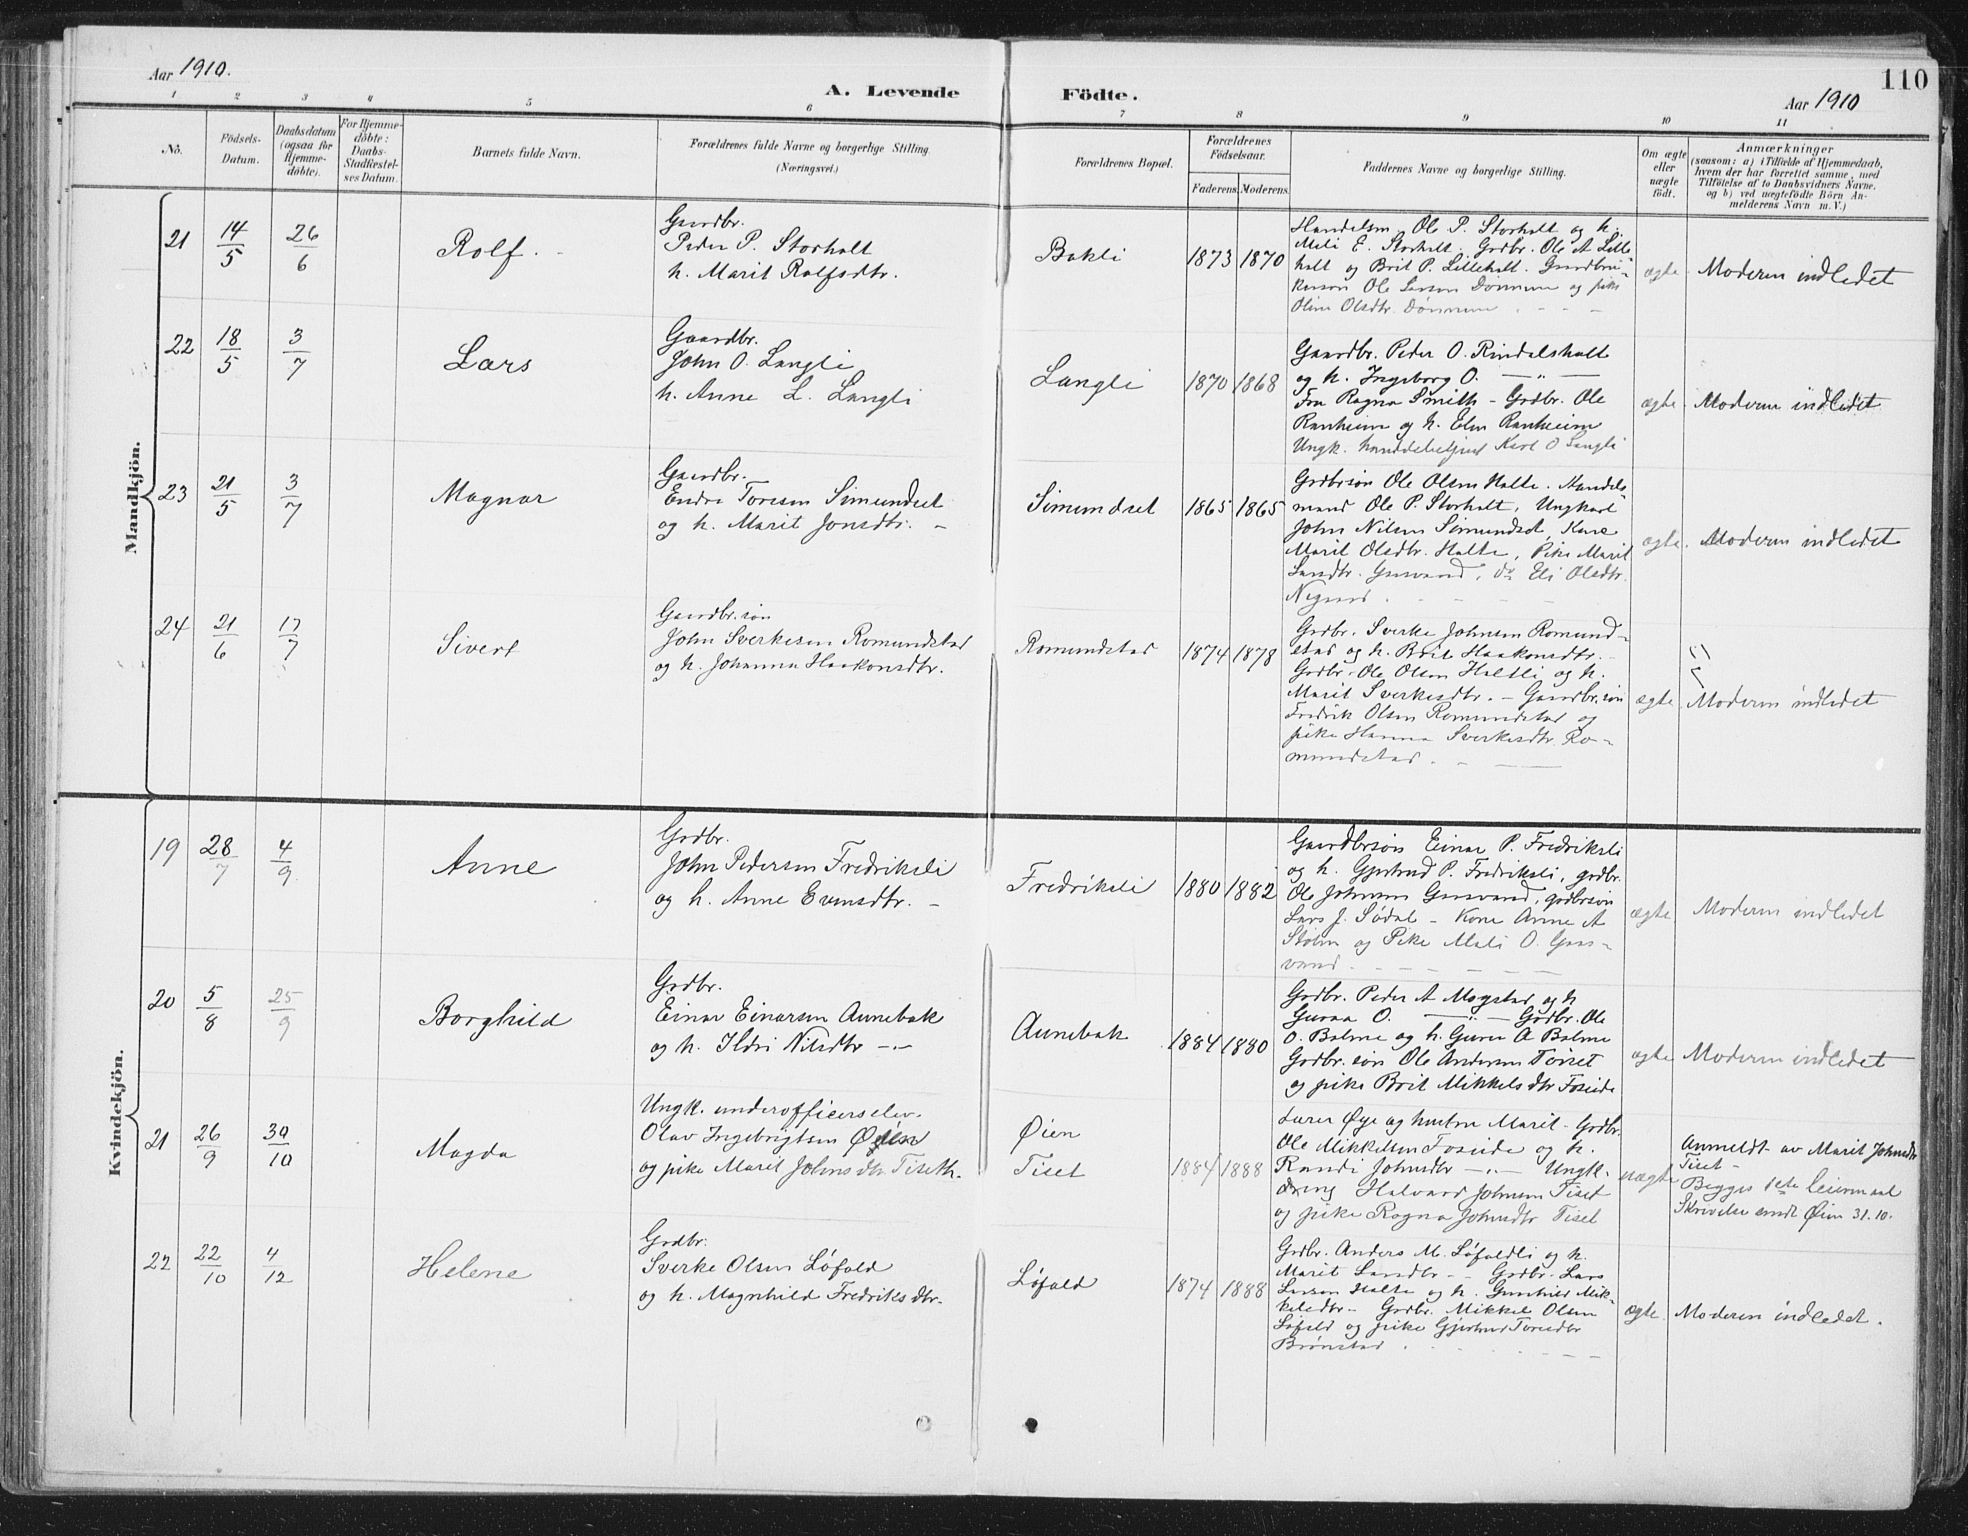 Aar 1910.
A. Levende Födte.
110
Aar 1910
1 2 3 4 5 6 7 8 9 10 11
No.
Födsels-
Datum.
Daabsdatum
(ogsaa for
Hjemme-
döbte).
For Hjemme-
döbte:
Daabs-
Stadfæstel-
ses Datum.
Barnets fulde Navn.
Forældrenes fulde Navne og borgerlige Stilling.
(Næringsvei.)
Forældrenes Bopæl.
Forældrenes
Födselsaar.
Faderens. Moderens.
Faddernes Navne og borgerlige Stilling.
Om ægte
eller
uægte
födt.
Anmærkninger
(saasom: a) i Tilfælde af Hjemmedaab,
hvem der har forrettet samme, med
Tilföielse af to Daabsvidners Navne,
og b) ved uægtefödte Börn An-
melderens Navn m. V.)
Mandkjön.
21
14/5
26/6
Rolf.
Gaardbr.
Peder P. Storholt
h. Marit Rolfsdtr.
Bakli
1873 1870
Handelsm. Ole P. Storholt og h.
Mali E. Storholt. Grdbr. Ole A Lille-
holt og Brit P. Lilleholt. Gaardbru-
kersøn Ole Larsen Dønnem og pike
Oline Olsdtr. Dønnem
ægte
Moderen indledet
22
18/5
3/7
Lars
Gaardbr.
John O. Langli
h. Anne L. Langli
Langli
1870 1868
Gaardbr. Peder O. Rindalsholt
og h. Ingeborg O. — „ —
Fru Ragna Smith - Grdbr. Ole
Ranheim og h. Elen Ranheim
Ungk. handelsbetjent Karl O Langli
ægte
Moderen indledet
23
21/5
3/7
Magnar
Gaardbr.
Endre Toresen Simundset
og h. Marit Jonsdtr. -
Simundset
1865 1865
Grdbrsøn Ole Olsen Halte. Handels-
mand Ole P. Storholt, Ungkarl
John Nilsen Simundset, Kone
Marit Olsdtr. Halte, Pike Marit
Larsdtr. , do Eli Olsdtr.
ægte.
Moderen indledet
24
21/6
17/7
Sivert
Gaardbr.søn
John Sverkesen Romundstad
og h. Johanna Haakonsdtr.
Romundstad
1874 1878
Grdbr. Sverke Johnsen Romund-
stad og h. Brit Haakonsdtr. -
Grdbr. Ole Olsen Haltli og h.
Marit Sverkesdtr. - Gaardbr.søn
Fredrik Olsen Romundstad og
pike Hanna Sverkesdtr. Ro-
mundstad.
ægte
Moderen indledet
Kvindekjön.
19
28/7
4/9
Anne
Grdbr.
John Pedersen Fredriksli
og h. Anne Evensdtr. -
Fredriksli
1880 1882
Gaardbrsøn Einar P. Fredriksli
og h. Gjertrud P. Fredriksli, grdbr.
Ole Johnsen Gaasvand, grdbrsøn
Lars J. Sødal - Kone Anne A
Stølen og Pike Mali O. Gaas-
vand.
ægte
Moderen indledet
20
5/8
25/9
Borghild
Grdbr.
Einar Einarsen Aunebak
og h. Ildri Nilsdtr -„-
Aunebak
1884 1880
Grdbr. Peder A Mogstad og h
Guraa O. — „ — Grdbr. Ole
O. Bolme og h. Guren A Bolme
Grdbr. søn Ole Andersen Tøiset
og pike Brit Mikkelsdtr Foseide
ægte
Moderen indledet
21
26/9
30/10
Magda
Ungk. underofficerselev.
Olav Ingebrigtsen Øien
og pike Marit Johnsdtr Tiseth.
Øien
Tiset
1884 1888
Lærer Øye og hustru Marit - Grdbr.
Ole Mikkelsen Foseide og h.
Randi Johnsdtr -„- Ungk.
dreng Halvard Johnsen Tiset
og pike Ragna Johnsdtr Tiset
uægte
Anmeldt av Marit Johnsdtr
Tiset -
Begges 1ste leiermaal
Skrivelse sendt Øien 31.10.
22
22/10
4/12
Helene
Grdbr.
Sverke Olsen Løfald
og h. Magnhild Fredriksdtr-
Løfald
1874 1888
Grdbr. Anders M. Løfaldli og h.
Marit Larsdtr - - Grdbr. Lars
Larsen Halte og h. Gunhild Mik-
kelsdtr - Grdbr. Mikkel Olsen
Løfald og pike Gjertrud Toresdtr
Brønstad
ægte.
Moderen indledet.